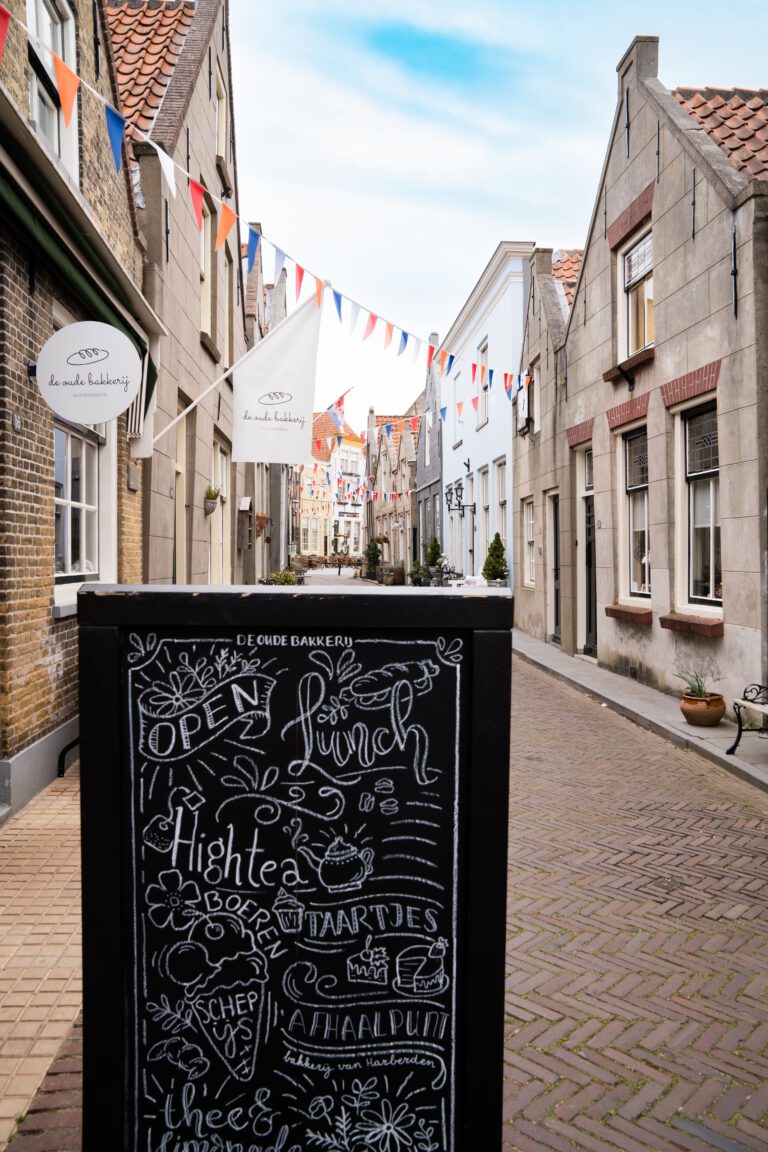 de oude bakkerij
IN OUDDORP
de oude bakkerij
DE OUDE BAKKERIJ
OPEN
Lunch
Hightea
BOEREN
SCHEP
ijs
TAARTJES
AFHAALPUNT
bakkerij van Harberden
thee &
limonade